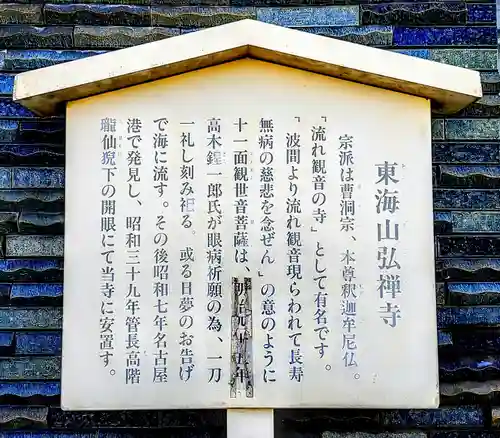 東海山弘禅寺
宗派は曹洞宗、本尊釈迦牟尼仏。
「流れ観音の寺」として有名です。
「波間より流れ観音現らわれて長寿
無病の慈悲を念ぜん」の意のように
十一面観世音菩薩は、
高木 一郎氏が眼病祈願の為、一刀
一礼し刻み祀る。或る日夢のお告げ
で海に流す。その後昭和七年名古屋
港で発見し、昭和三十九年管長高階
瓏仙猊下の開眼にて当寺に安置す。